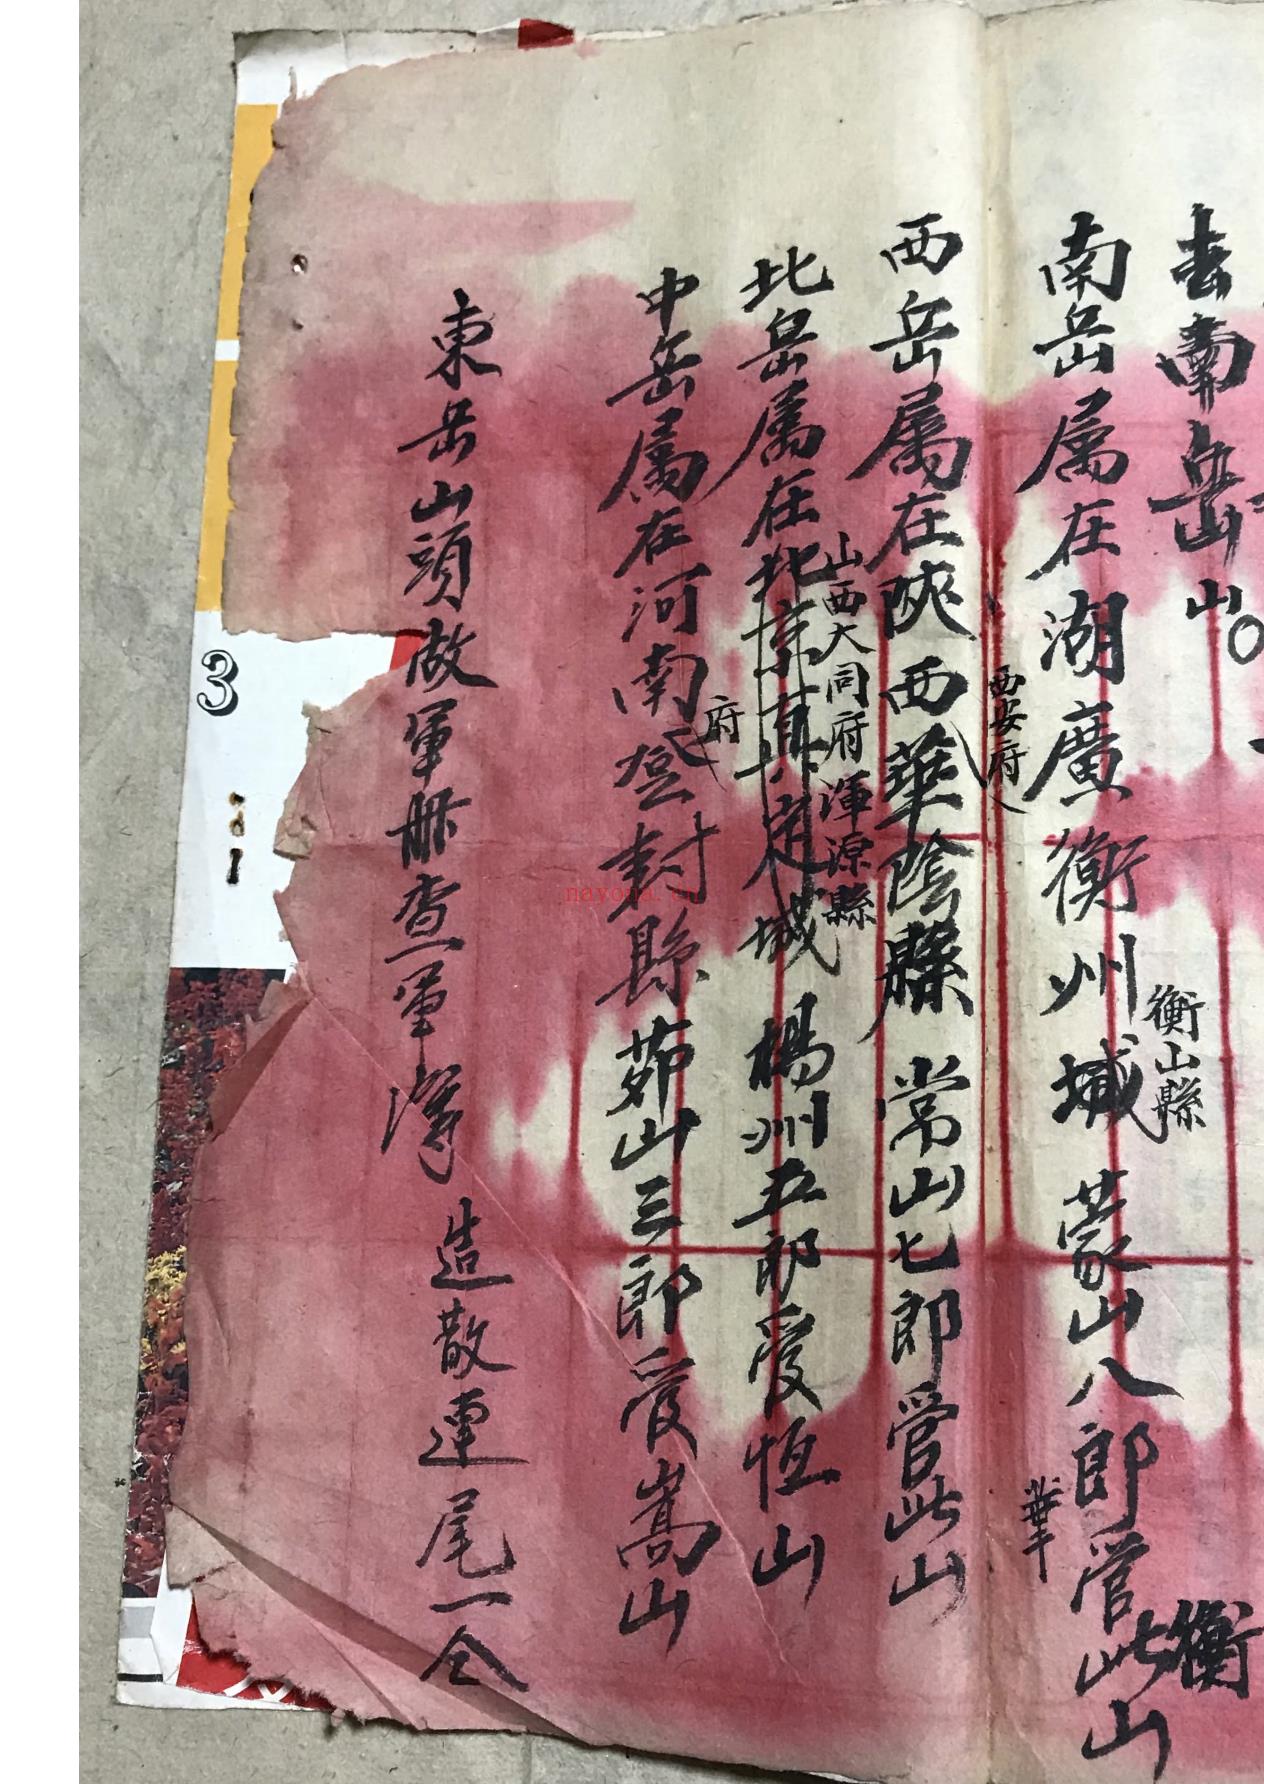 南岳山
南岳属在湖廣衡州城蒙山八郎管此山
衡山縣
衡
西岳属在陝西華陰縣常山七郎管此山
西安府
華
北岳属在北京真定城楊州五郎管恒山
山西大同府渾源縣
中岳属在河南登封縣茆山三郎管嵩山
府
東岳山頭做軍册查軍簿造散連尾一仝
3
1
nayona.cn